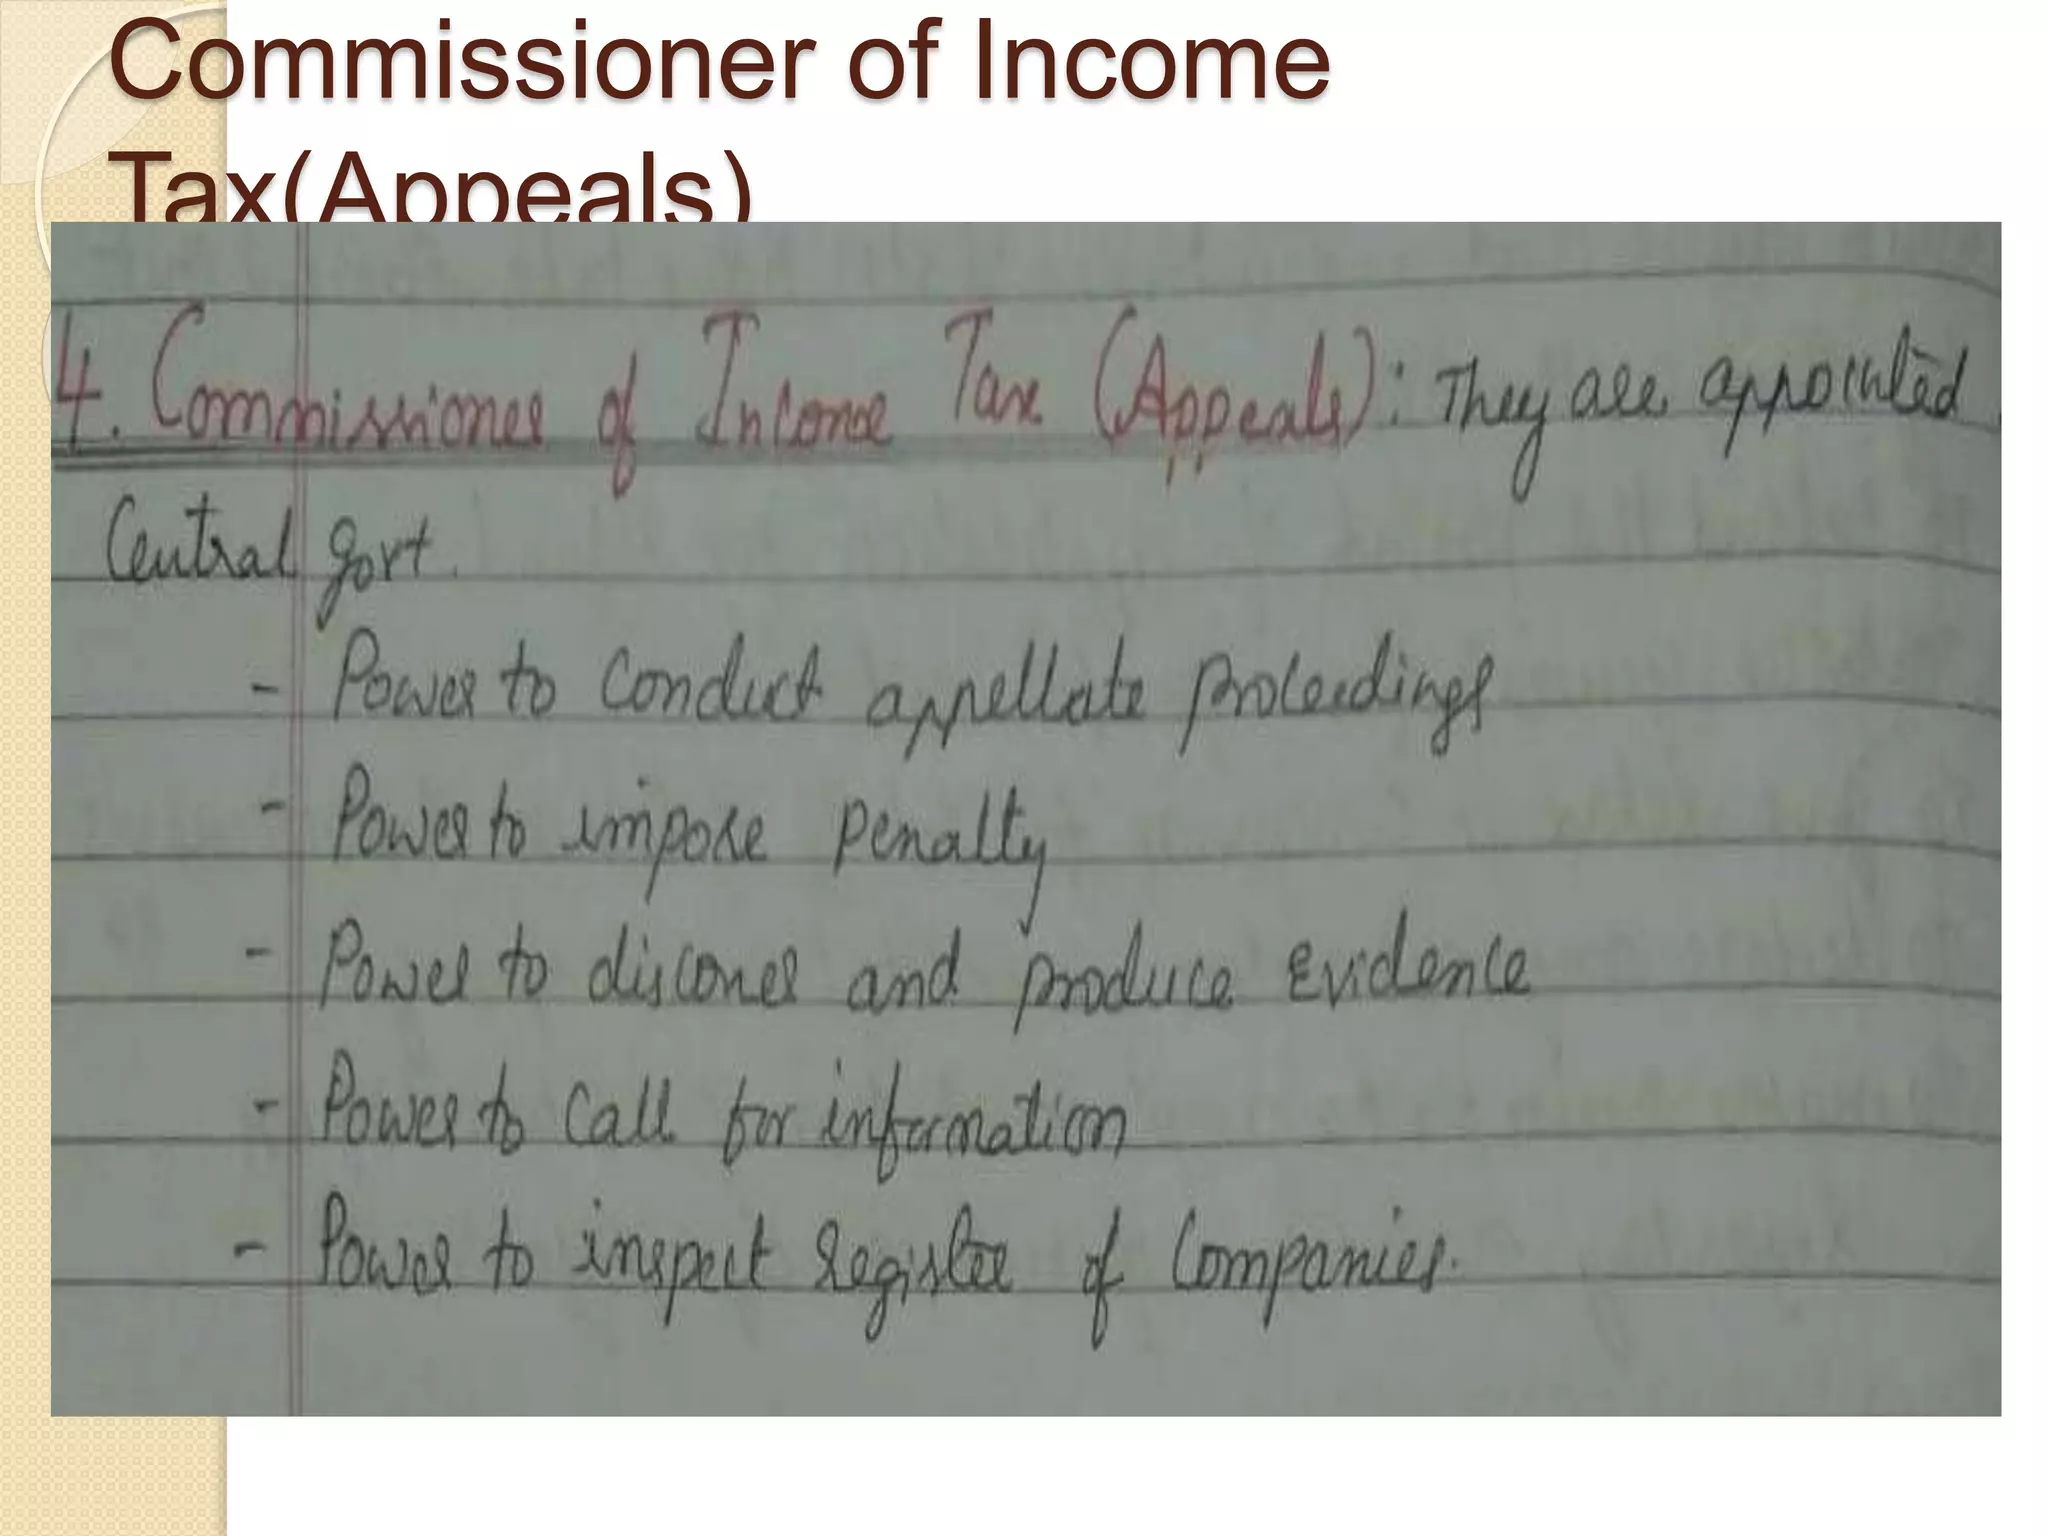 Commissioner of Income
Tax(Appeals)
4. Commissioner of Income Tax (Appeals): They are appointed
Central govt.
- Power to conduct appellate proceedings
- Power to impose penalty
- Power to discover and produce evidence
- Power to call for information
- Power to inspect register of companies.